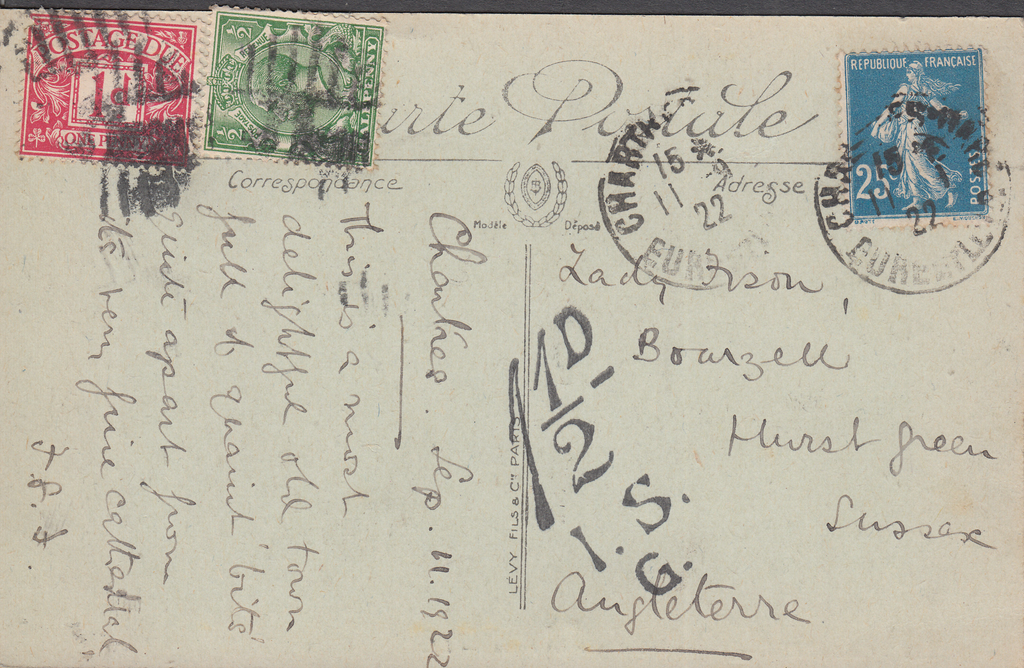 POSTAGE DUE
1d
ONE PENNY
½ ½
Carte Postale
REPUBLIQUE FRANÇAISE
25
POSTES
Correspondance
Adresse
Modèle Déposé
CHARTRES
15 *
11 9
22
EURE
CHARTRES
15 *
11
22
EURE
Chartres. Sep. 11. 1922
This is a most
delightful old town
full of quaint 'bits'
quite apart from
its very fine cathedral
F. F.
LÉVY FILS & Cie PARIS
1½D.
I.S.G.
Lady Ison,
Bourzell
Hurst Green
Sussex
Angleterre